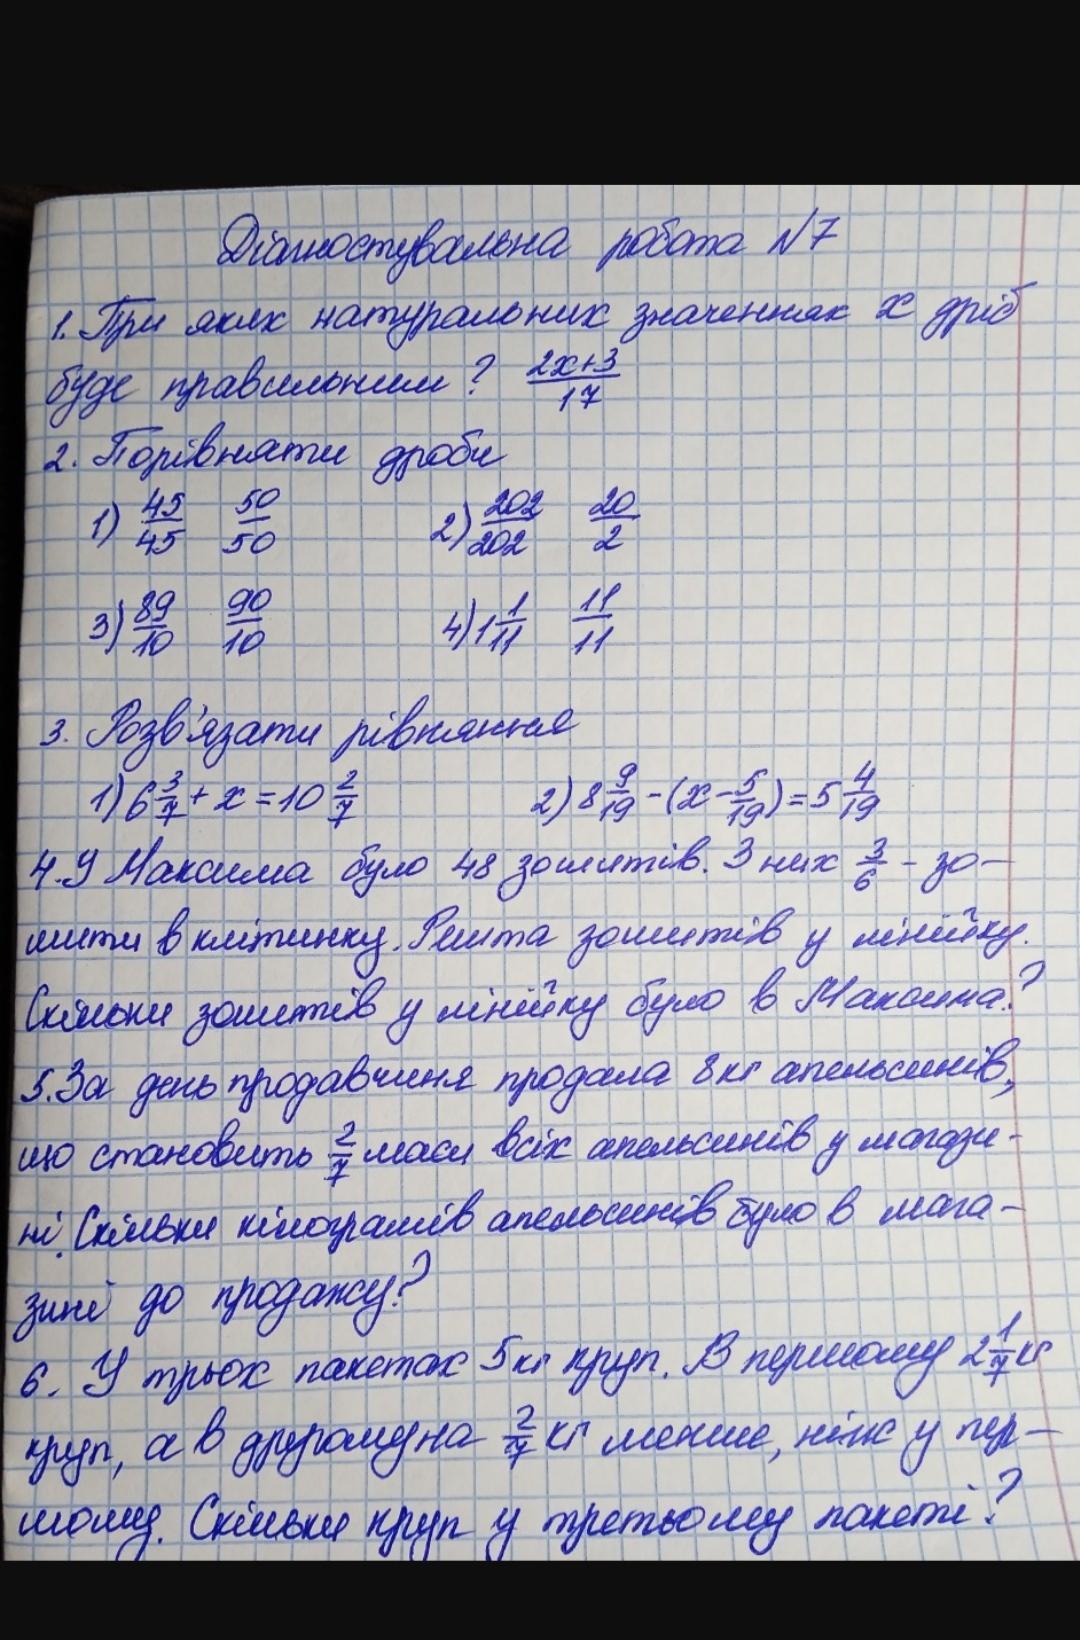 Діагностувальна робота №7
1. При яких натуральних значеннях x дріб
буде правильним? (2x+3)/17
2. Порівняти дроби
1) 45/45 50/50 2) 202/202 20/2
3) 89/10 90/10 4) 1 1/11 11/11
3. Розв'язати рівняння
1) 6 3/7 + x = 10 2/7 2) 8 9/19 - (x - 5/19) = 5 4/19
4. У Максима було 48 зошитів. З них 3/6 - зо-
шити в клітинку. Решта зошитів у лінійку.
Скільки зошитів у лінійку було в Максима?
5. За день продавчиня продала 8 кг апельсинів,
що становить 2/7 маси всіх апельсинів у магази-
ні. Скільки кілограмів апельсинів було в мага-
зині до продажу?
6. У трьох пакетах 5 кг круп. В першому 2 1/7 кг
круп, а в другому на 2/7 кг менше, ніж у пер-
шому. Скільки круп у третьому пакеті?